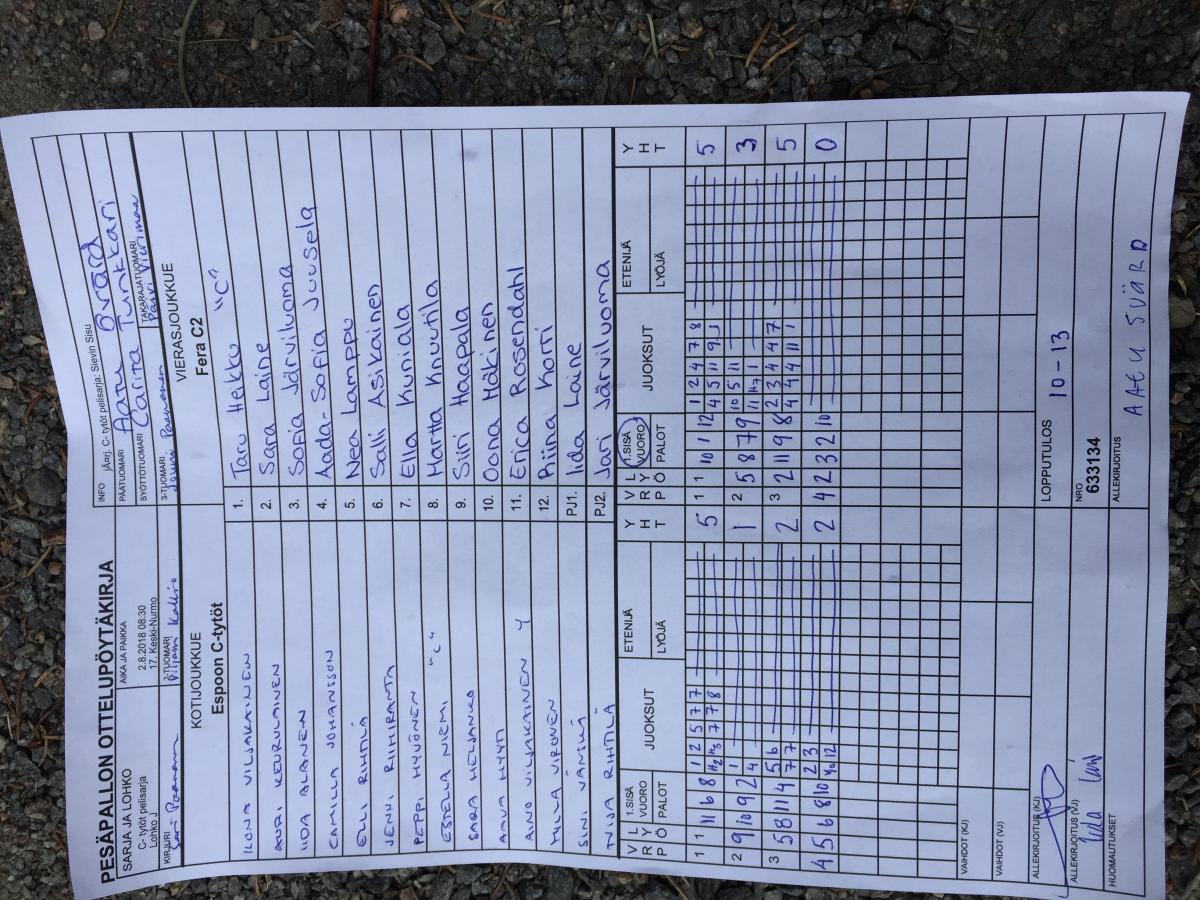 PESÄPALLON OTTELUPÖYTÄKIRJA
SARJA JA LOHKO
C- tytöt pelisarja
Lohko J
AIKA JA PAIKKA
2.8.2018 08:30
17. Keski-Nurmo
INFO jÄ¤rj. C- tytöt pelisarja: Sievin Sisu
PÄÄTUOMARI Aatu Svärd
SYÖTTÖTUOMARI Carita Tunkkari
KIRJURI
2-TUOMARI
3-TUOMARI
TAKARAJATUOMARI
KOTIJOUKKUE
Espoon C-tytöt
VIERASJOUKKUE
Fera C2
ILONA VILJAKAINEN 1. Taru Heikku "C"
AURI KEURULAINEN 2. Sara Laine
IIDA ALANEN 3. Sofia Järviluoma
CAMILLA JOHANSSON 4. Aada-Sofia Juusela
ELLI RIHTILÄ 5. Nea Lamppu
JENNI RIIHIRANTA 6. Salli Asikainen
PEPPI HYVÖNEN 7. Ella Kuniala
ESTELLA NIEMI "C" 8. Martta Knuutila
SARA HELJANKO 9. Siiri Haapala
ANNA HYYTI 10. Oona Mäkinen
AINO VILJAKAINEN Y 11. Erica Rosendahl
MILLA VIRONEN 12. Riina Korri
SINI VÄNSKÄ PJ1. Iida Laine
TUIJA RIHTILÄ PJ2. Jari Järviluoma
V R P L Y Ö 1.SISÄ VUORO PALOT JUOKSUT ETENIJÄ LYÖJÄ Y H T V R P L Y Ö 1.SISÄ VUORO PALOT JUOKSUT ETENIJÄ LYÖJÄ Y H T
1 1 11 6 8 1 2 5 7 7 5 1 1 10 1 12 1 2 4 7 8 5
H2 H3 7 7 8 4 5 11 9
2 9 10 9 2 1 1 2 5 8 7 9 10 5 11 3
4 11 H7 1
3 5 8 11 4 5 6 2 3 2 11 9 8 2 3 4 4 7 5
7 7 4 4 4 11 1
4 5 6 8 10 2 3 2 2 4 2 3 2 10 0
10 12
VAIHDOT (KJ)
VAIHDOT (VJ)
ALLEKIRJOITUS (KJ)
LOPPUTULOS 10-13
ALLEKIRJOITUS (VJ) Iida
NRO
633134
HUOMAUTUKSET
ALLEKIRJOITUS
AATU SVÄRD